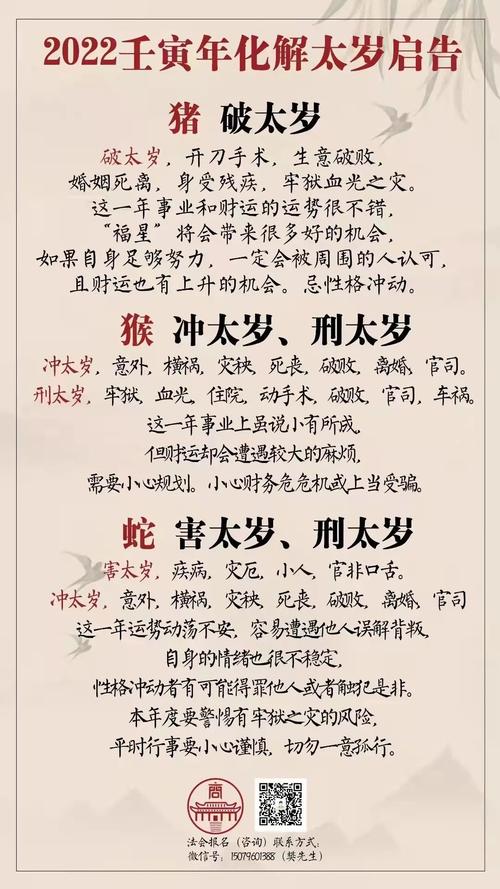 2022壬寅年化解太岁启告
猪 破太岁
破太岁，开刀手术，生意破败，
婚姻死离，身受残疾，牢狱血光之灾。
这一年事业和财运的运势很不错，
“福星”将会带来很多好的机会，
如果自身足够努力，一定会被周围的人认可，
且财运也有上升的机会。忌性格冲动。
猴 冲太岁、刑太岁
冲太岁，意外，横祸，灾秧，死丧，破败，离婚，官司。
刑太岁，牢狱，血光，住院，动手术，破败，官司，车祸。
这一年事业上虽说小有所成，
但财运却会遭遇较大的麻烦，
需要小心规划。小心财务危危机或上当受骗。
蛇 害太岁、刑太岁
害太岁，疾病，灾厄，小人，官非口舌。
冲太岁，意外，横祸，灾秧，死丧，破败，离婚，官司
这一年运势动荡不安，容易遭遇他人误解背叛，
自身的情绪也很不稳定，
性格冲动者有可能得罪他人或者触犯是非。
本年度要警惕有牢狱之灾的风险，
平时行事要小心谨慎，切勿一意孤行。
法会报名（咨询）联系方式：
微信号：15079601388（樊先生）